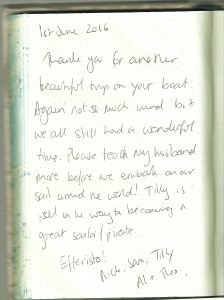 1st June 2016
Thank you for another
beautiful trip on your boat.
Again not so much wind but
we all still had a wonderful
time. Please teach my husband
more before we embark on our
sail around the world! Tilly is
well on the way to becoming a
great sailor/pirate
Efferisto!
Nick, Sam, Tilly
Al + Theo.